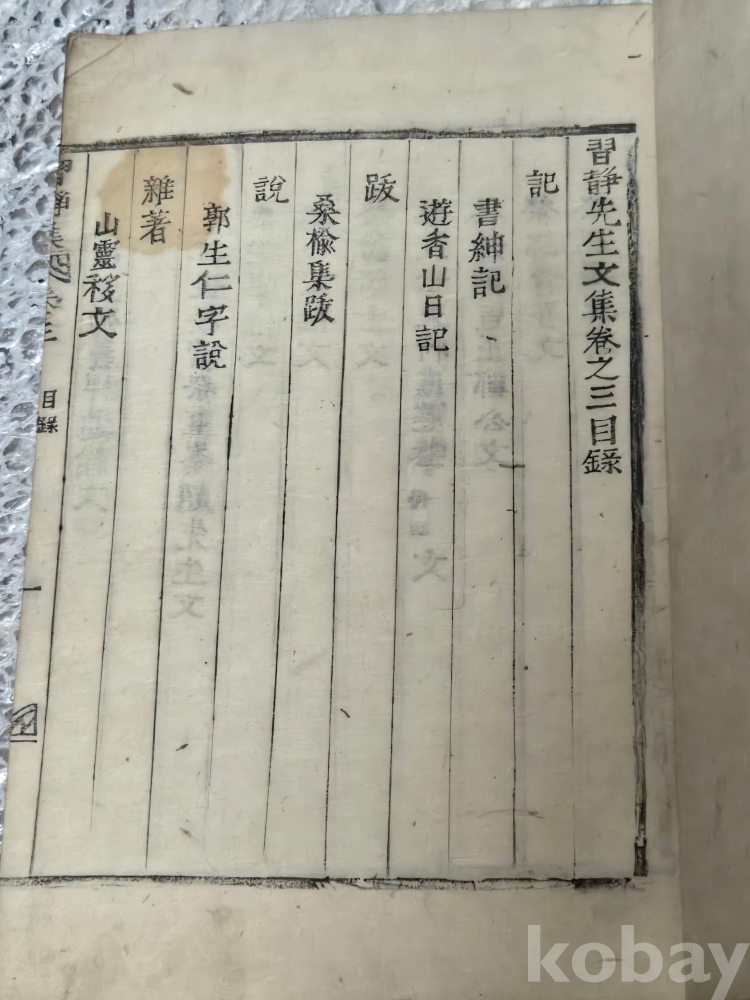 習静先生文集卷之三目錄
記
書紳記
遊香山日記
跋
桑楡集跋
說
郭生仁字說
雜著
山靈移文
目錄
一
kobay